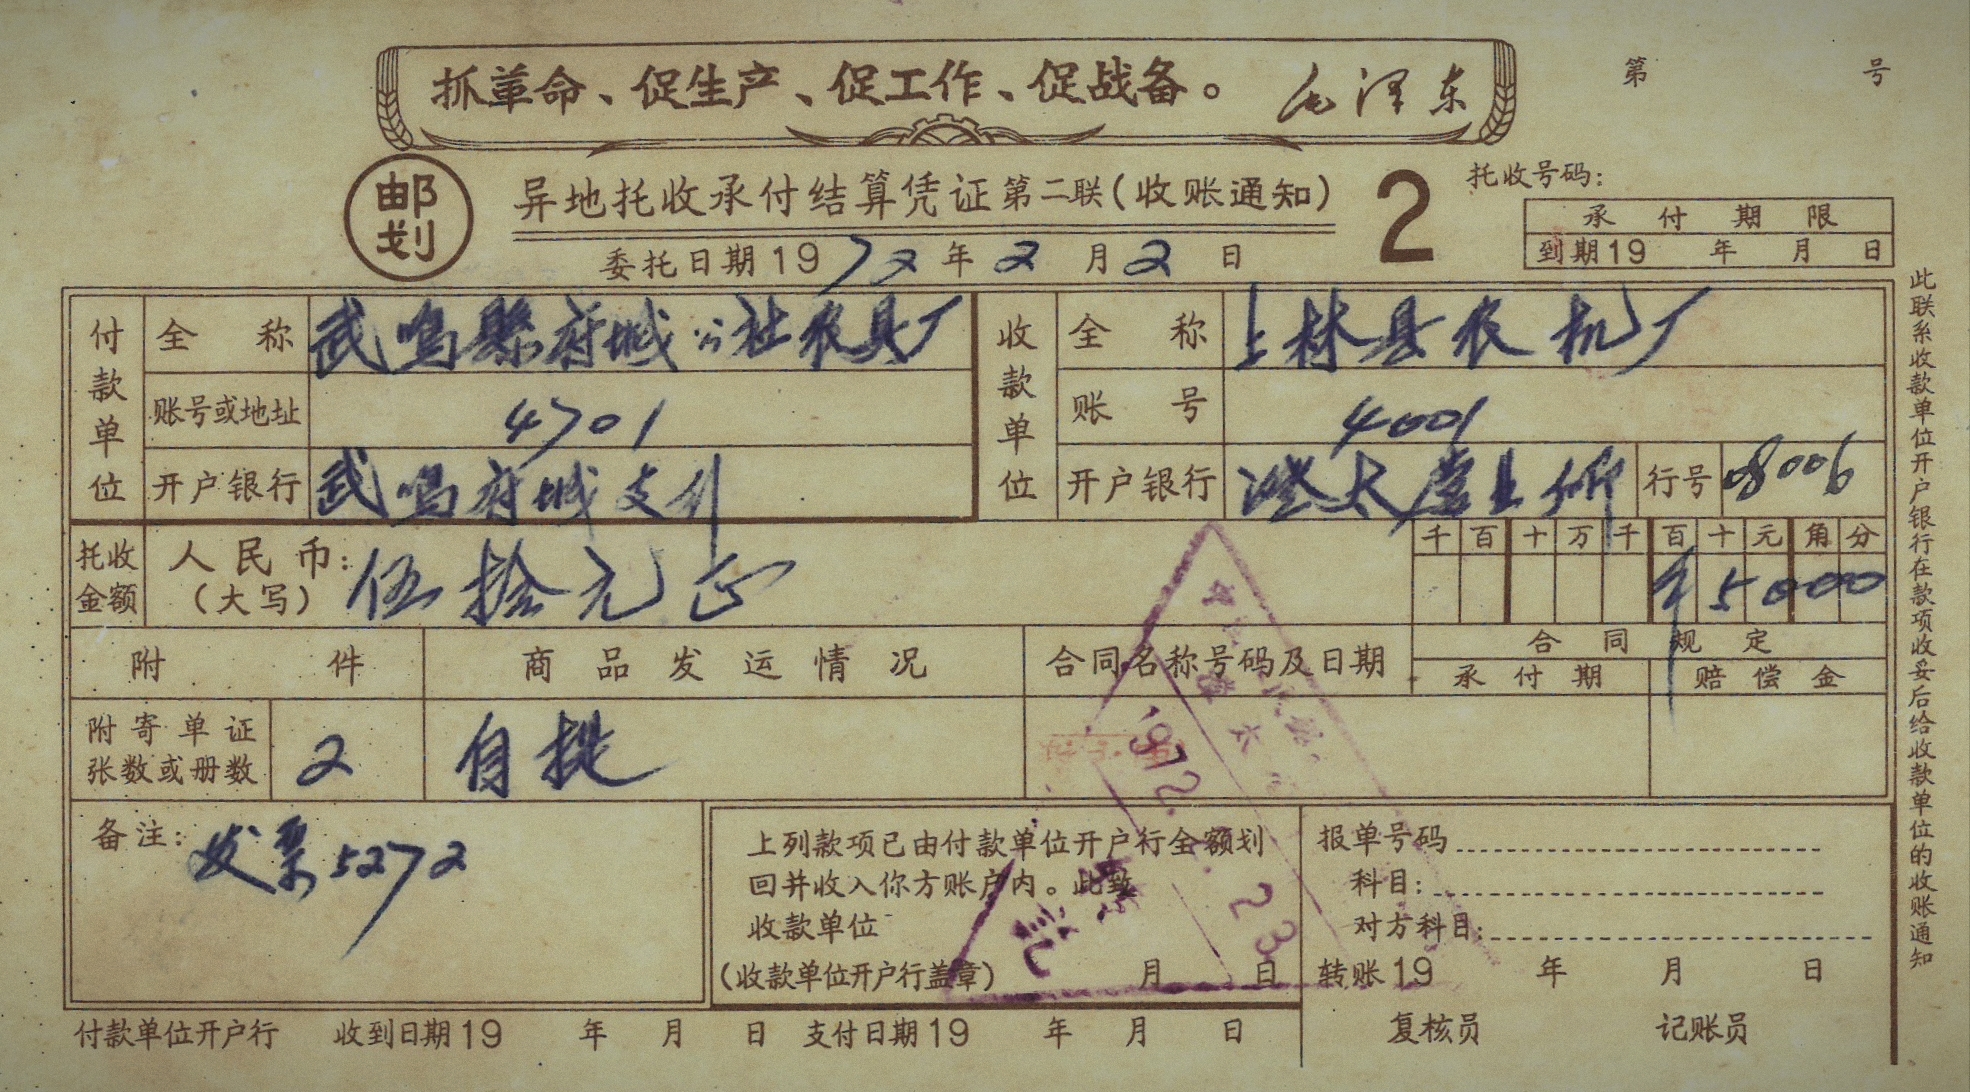 抓革命、促生产、促工作、促战备。 毛泽东
第 号
邮划
异地托收承付结算凭证第二联(收账通知)
2
托收号码:
承付期限
到期19 年 月 日
委托日期1972年2月2日
付款单位
全称 武鸣縣府城公社农具厂
账号或地址 4701
开户银行 武鸣府城支行
收款单位
全称 上林县农机厂
账号 4001
开户银行
行号 08006
托收金额
人民币:(大写) 伍拾元正
千百十万千百十元角分
¥5000
附件
商品发运情况
合同名称号码及日期
合同规定
承付期
赔偿金
附寄单证
张数或册数
2
自提
备注: 发票5272
上列款项已由付款单位开户行全额划
回并收入你方账户内。此致
收款单位
(收款单位开户行盖章) 月 日
1972. 23
报单号码
科目:
对方科目:
转账19 年 月 日
付款单位开户行 收到日期19 年 月 日 支付日期19 年 月 日
复核员 记账员
此联系收款单位开户银行在款项收妥后给收款单位的收账通知